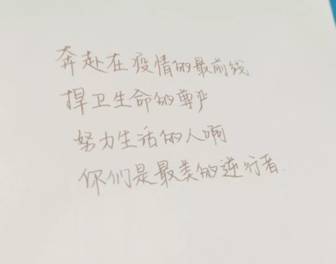 奔赴在疫情的最前线
捍卫生命的尊严
努力生活的人啊
你们是最美的逆行者